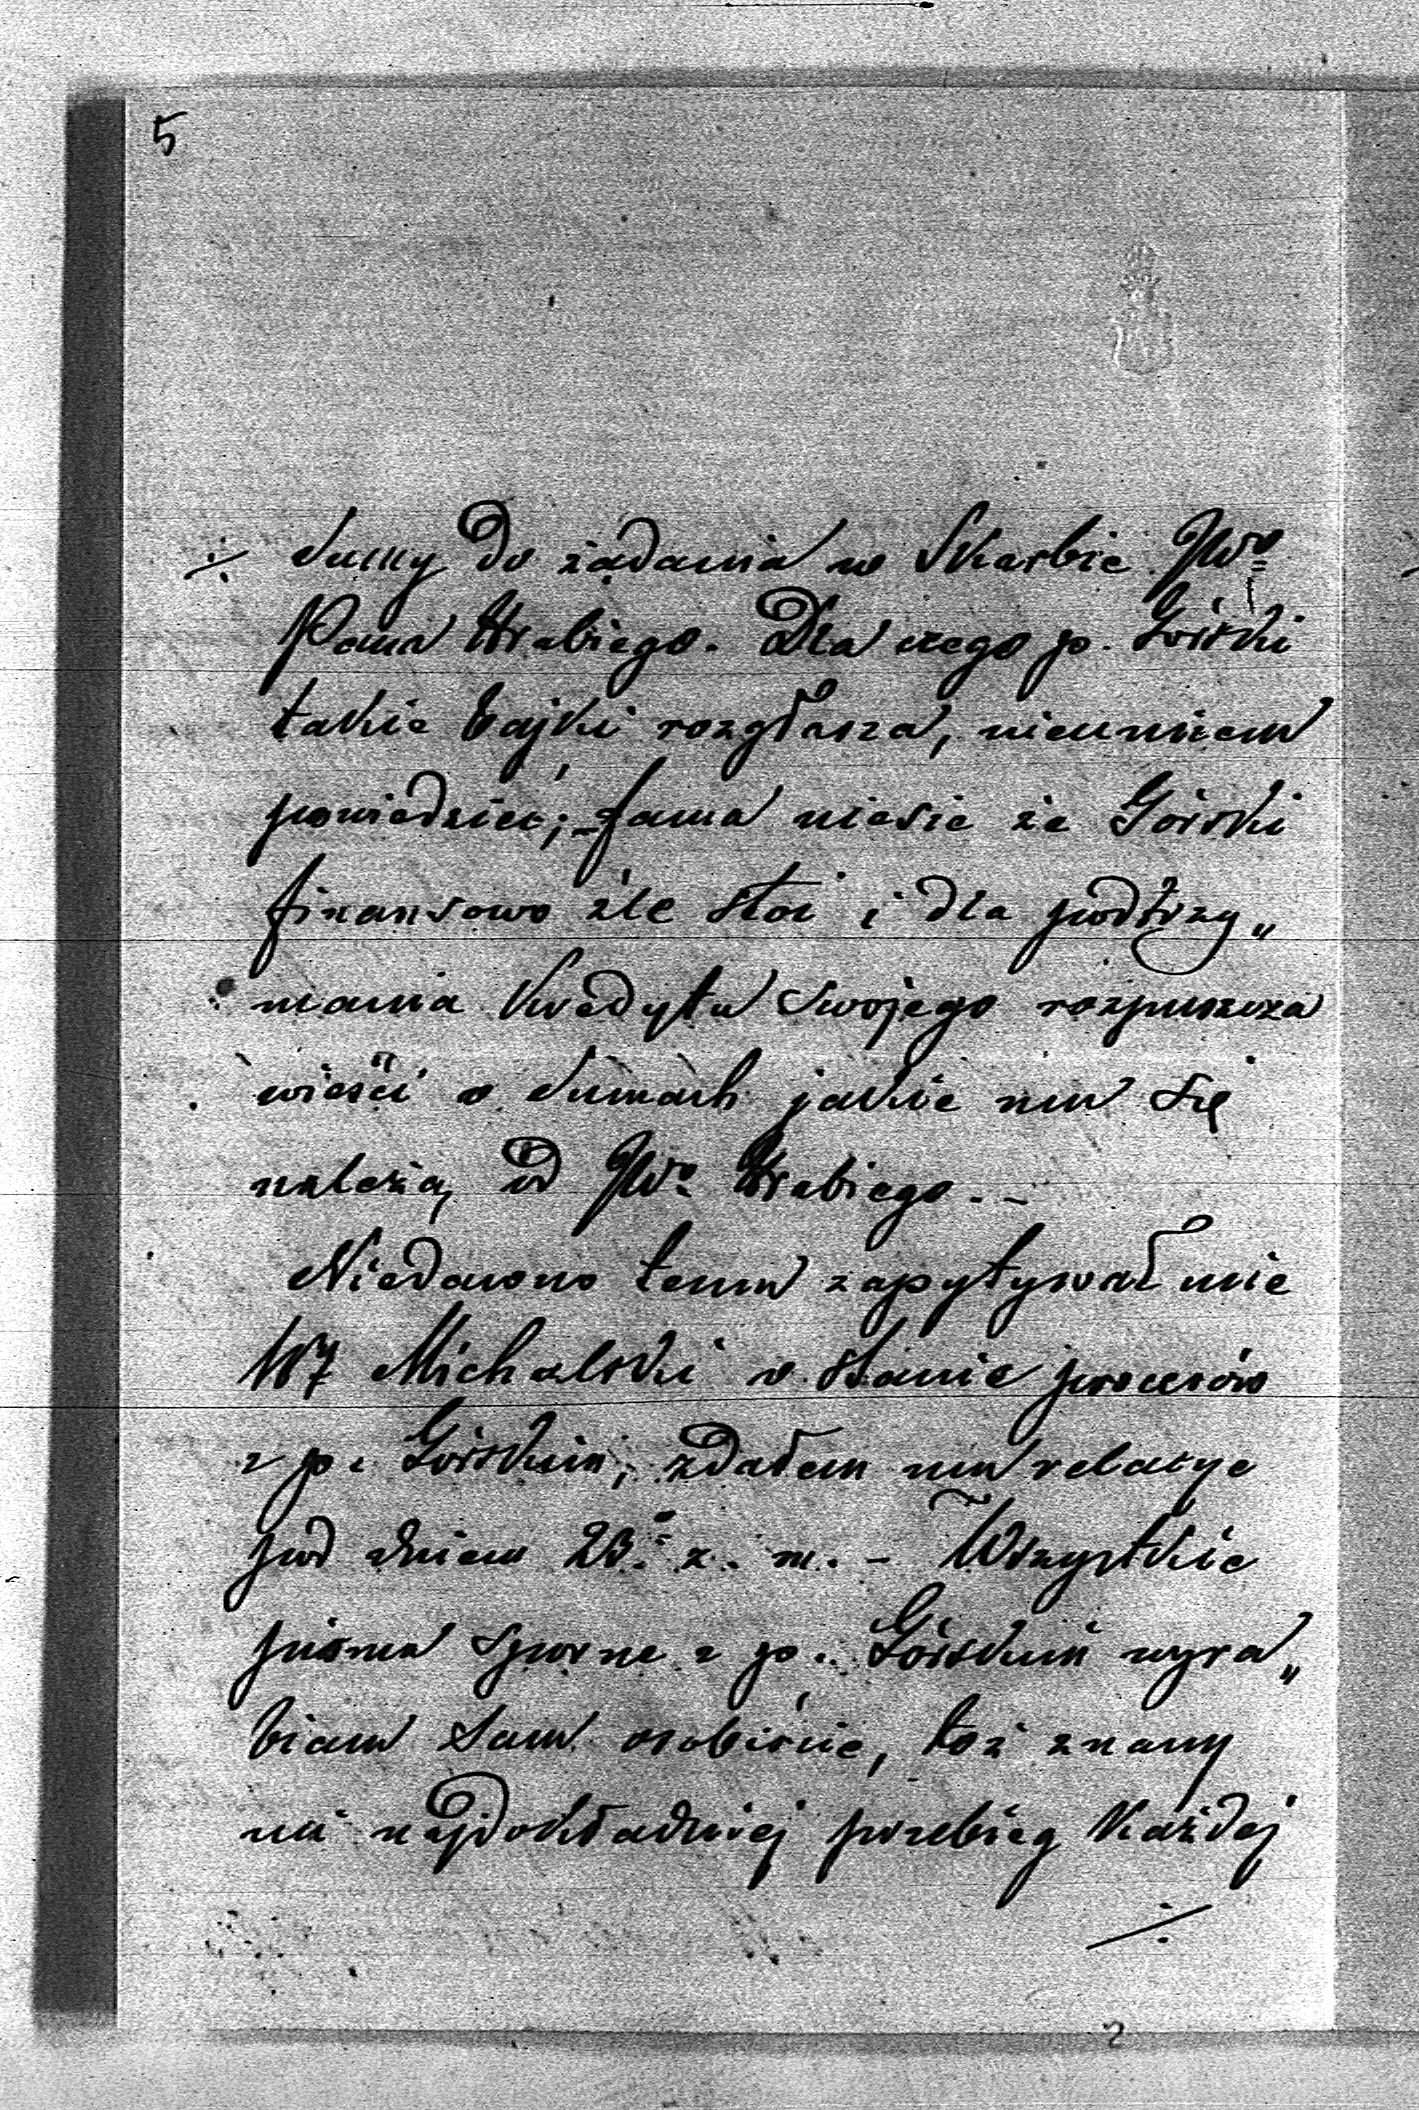 5
./. Sumy do żądania w Skarbie JWo
Pana Hrabiego. Dla czego p. Górski
takie bajki rozgłasza, nieumiem
powiedzieć; – fama niesie że Górski
finansowo źle stoi i dla podtrzy„
mania Kredytu swojego rozpuszcza
wieści o sumach jakie mu się
należą od JWo Hrabiego. –
Niedawno temu zapytywał mie
Michalski o stanie procesów
z p. Górskim; zdałem mu relacye
pod dniem 23. z. m. – Wszystkie
pisma sporne z p. Górskim wyra„
biam sam osobiście, toż znany
mi najdokładniej przebieg Każdej
./.
2